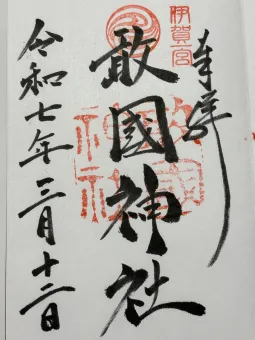 奉拝
伊賀一宮
敢國神社
令和七年三月十二日